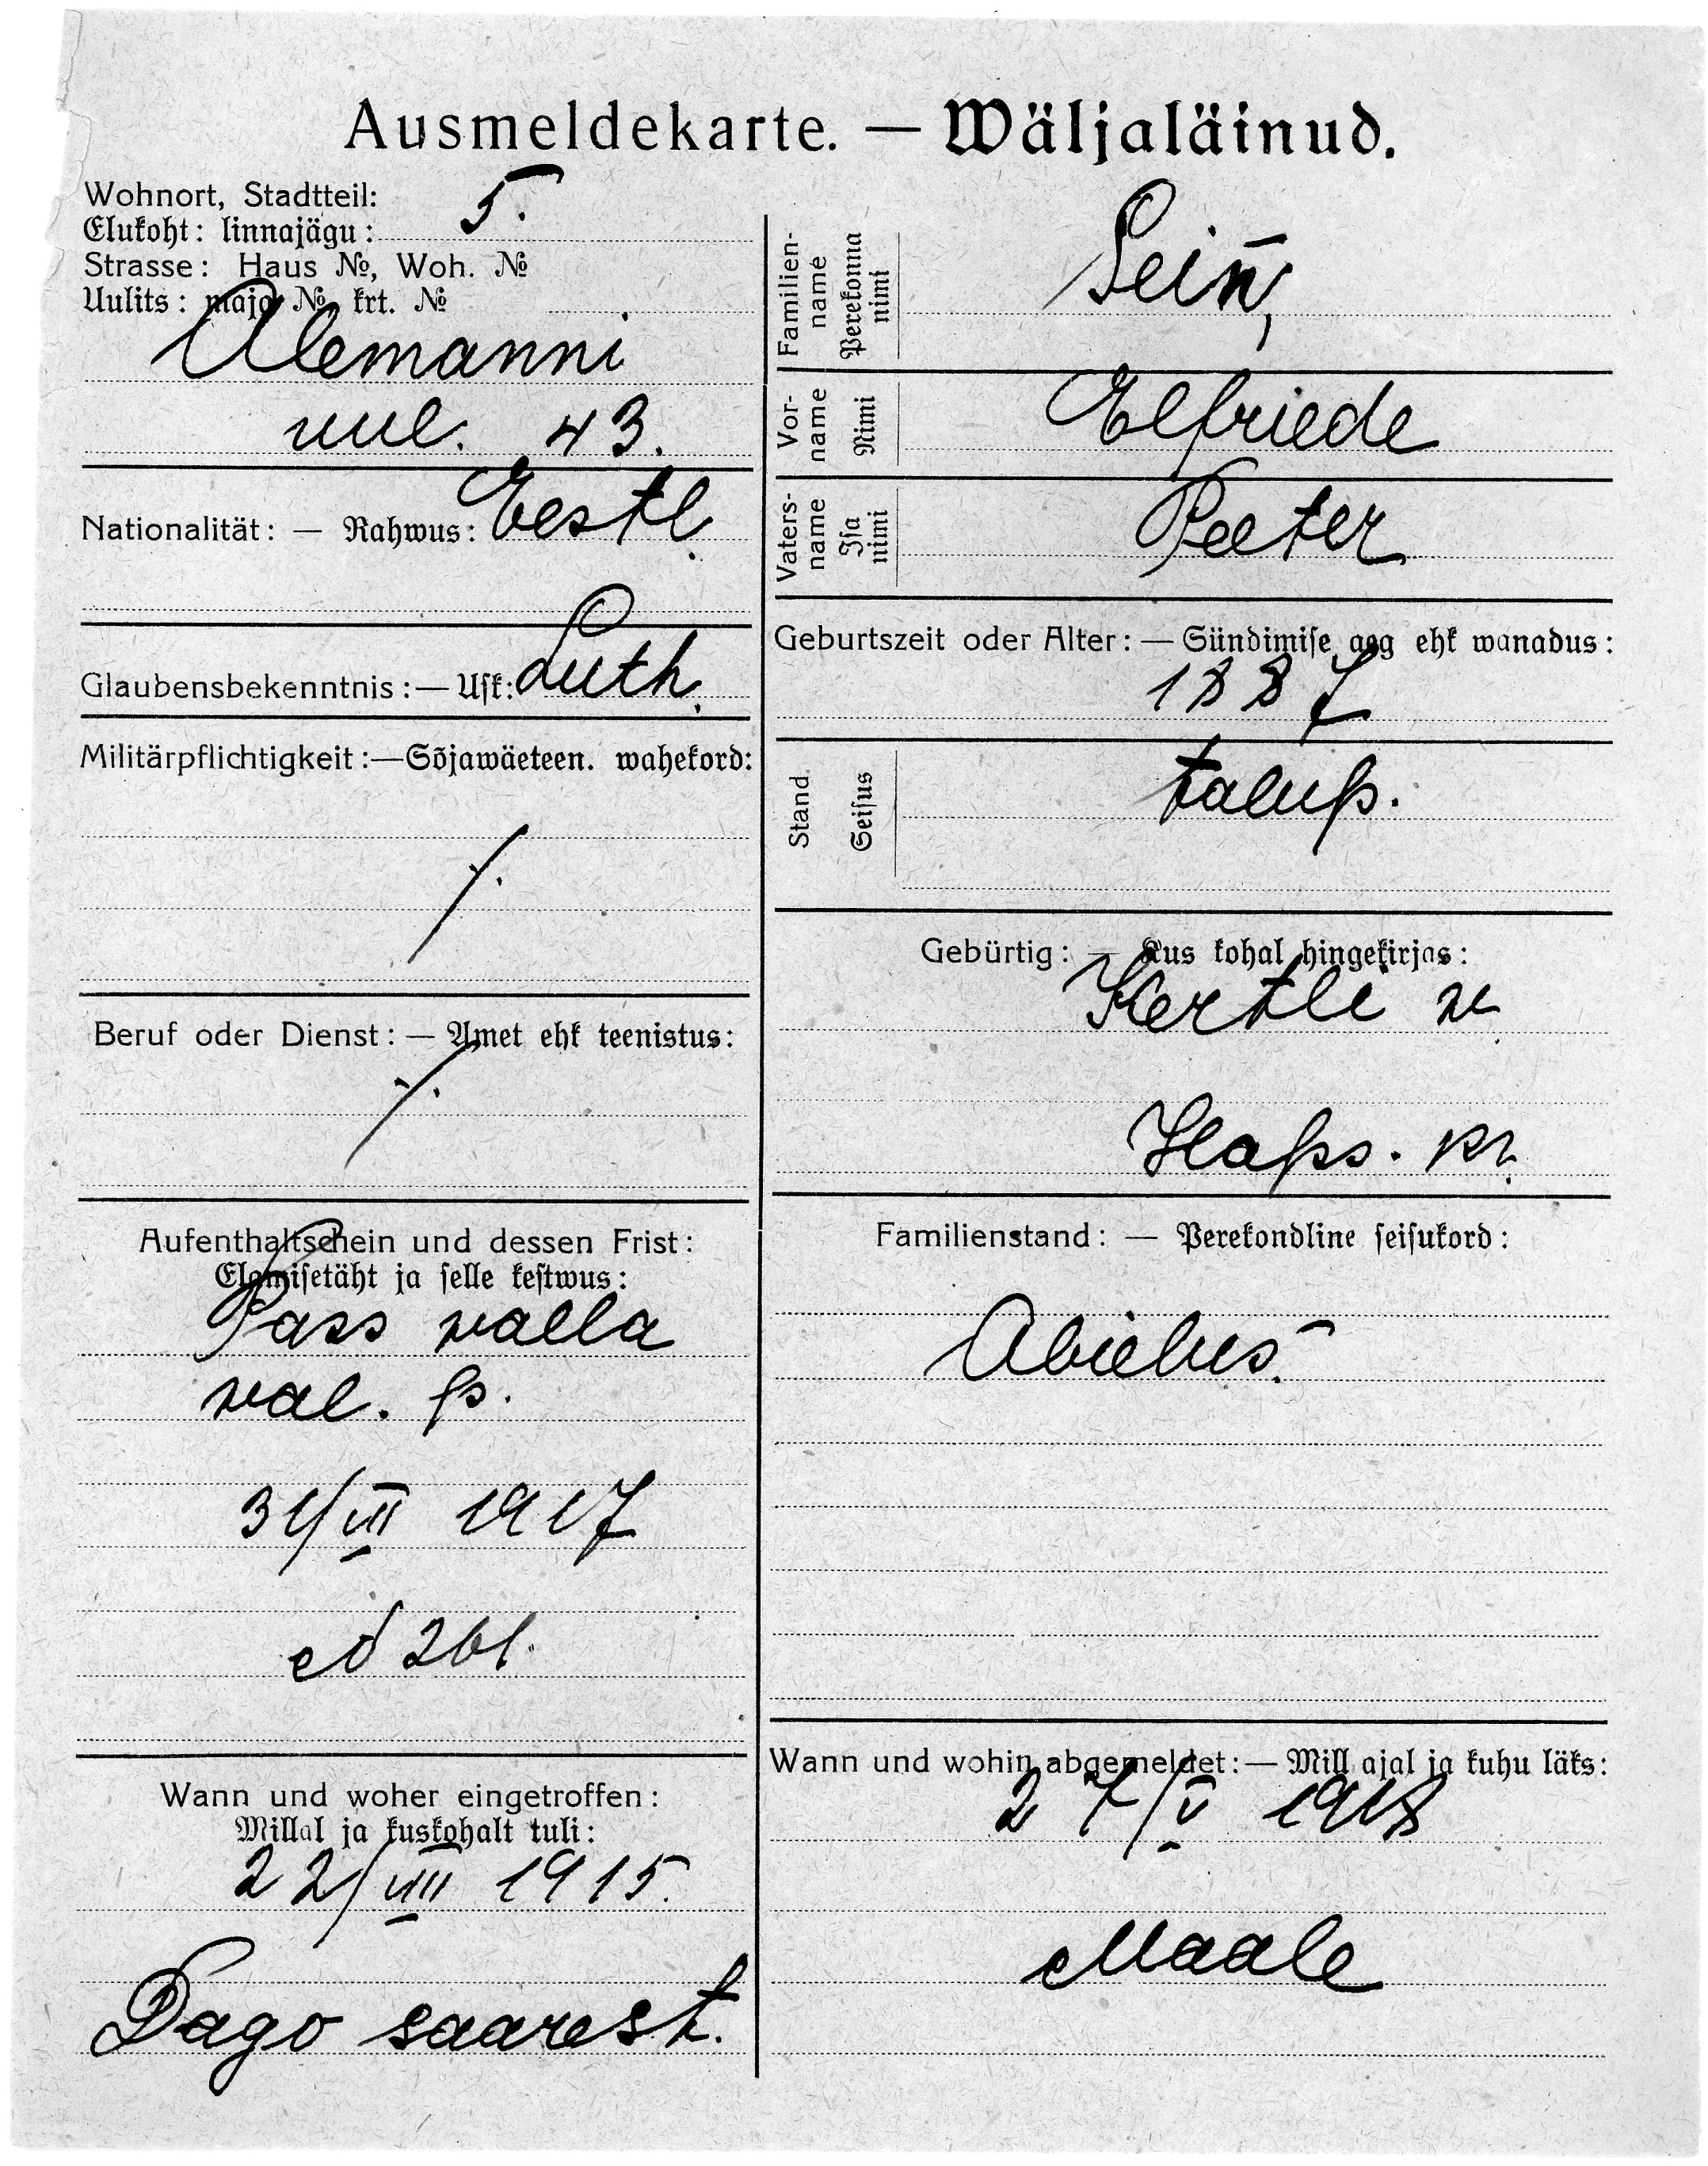 Ausmeldekarte. — Wäljaläinud.
Wohnort, Stadtteil:
Elukoht: linnajägu: 5.
Strasse: Haus №, Woh. №
Uulits: maja № krt. №
Alemanni
uul. 43.
Nationalität: — Rahwus: Eestl.
Glaubensbekenntnis: — Usk: Luth.
Militärpflichtigkeit: — Sõjawäeteen. wahekord:
Beruf oder Dienst: — Amet ehk teenistus:
Aufenthaltschein und dessen Frist:
Elamisetäht ja selle kestwus:
Pass walla
wal. p.
31/VII 1917
№ 261.
Wann und woher eingetroffen:
Millal ja kuskohalt tuli:
22/VIII 1915.
Dago saarest.
Familien-
name
Perekonna
nimi
Sein,
Vor-
name
Nimi
Elfriede
Vaters-
name
Isa
nimi
Peeter
Geburtszeit oder Alter: — Sündimise aeg ehk wanadus:
1887
Stand
Seisus
talup.
Gebürtig: — Kus kohal hingekirjas:
Kertli w.
Haps. kr.
Familienstand: — Perekondline seisukord:
Abielus.
Wann und wohin abgemeldet: — Mill ajal ja kuhu läks:
27/V 1918
Maale